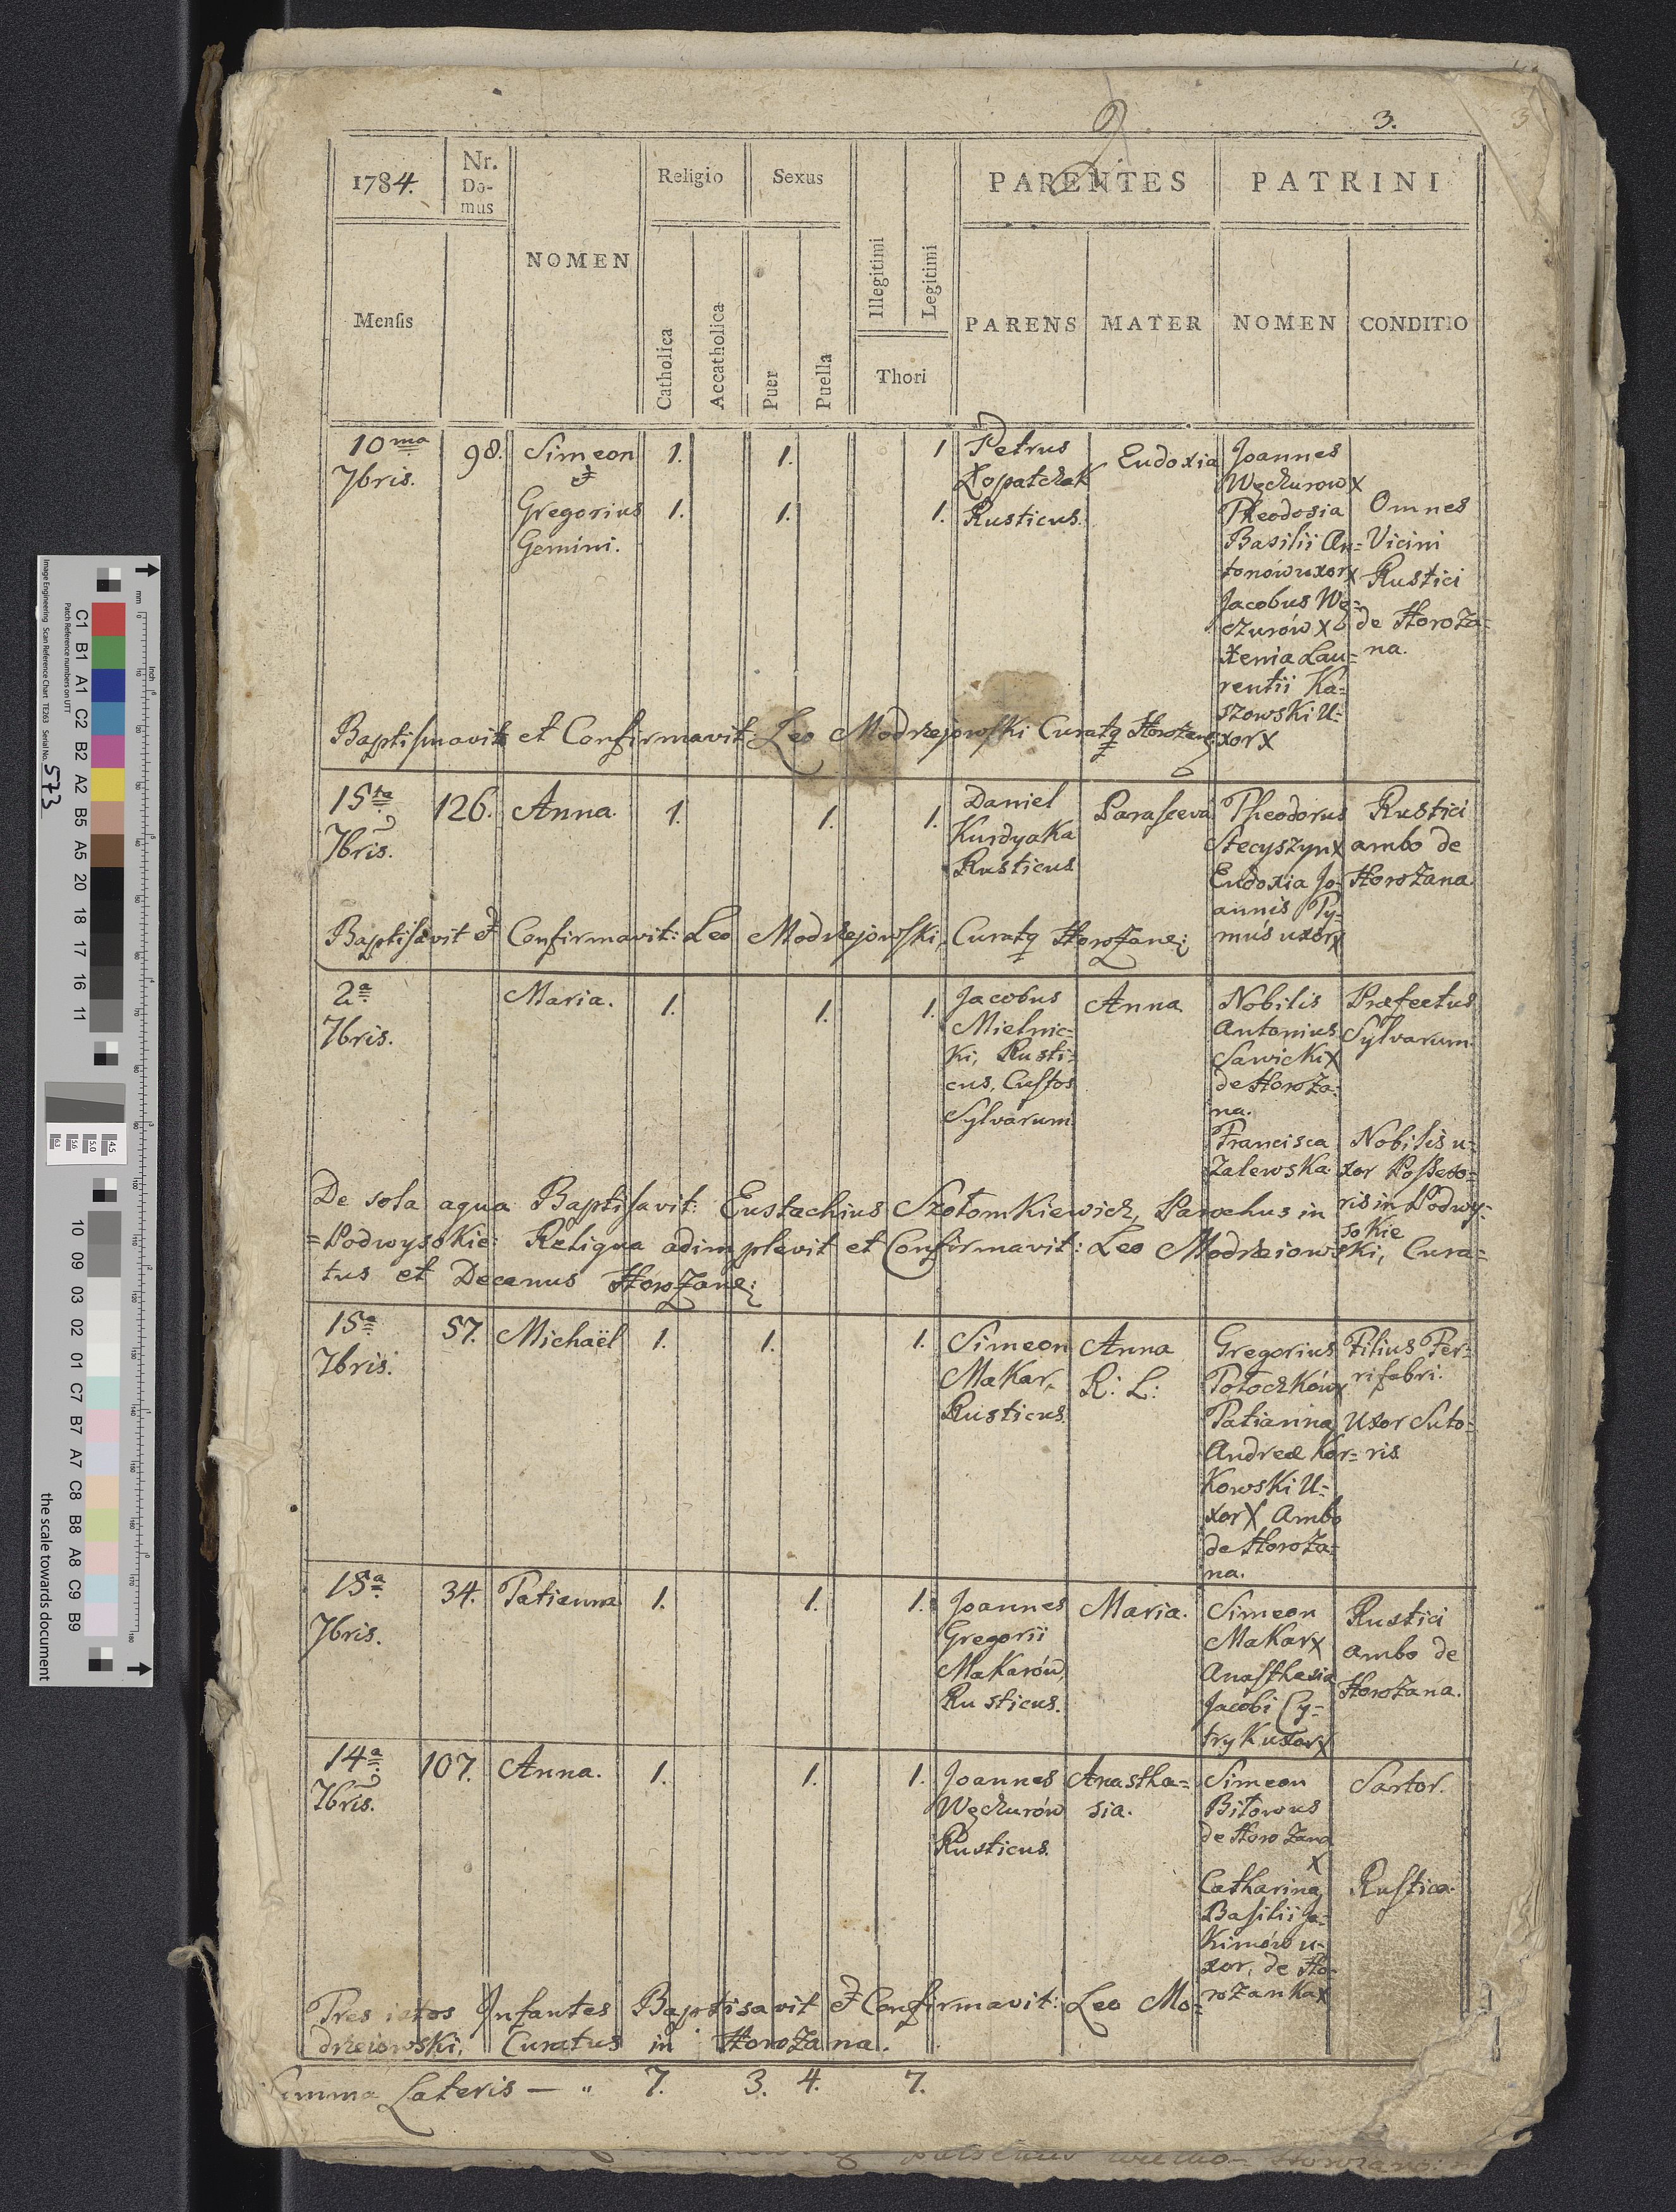 3.
3
1784.
Nr.
Do-
mus
NOMEN
Religio
Sexus
PARENTES
PATRINI
Mensis
Catholica
Accatholica
Puer
Puella
Illegitimi
Legitimi
Thori
PARENS
MATER
NOMEN
CONDITIO
10ma
7bris.
98.
Simeon
et
Gregorius
Gemini.
1.
1.
1.
1.
1
1.
Petrus
Łopatchak
Rusticus.
Eudoxia
Joannes
Węchurow X
Theodosia
Basilii An=
tonów uxor X
Jacobus Wę=
czurów X
Xenia Lau=
rentii Ka=
szowski U=
xor X
Omnes
Vicini
Rustici
de Horoża=
na.
Baptismavit et Confirmavit Leo Modrzejowski Curatq Horożanę
15ta
7bris.
126.
Anna.
1.
1.
1.
Daniel
Kurdyaka
Rusticus
Parasceva
Theodorus
Stecyszyn X
Eudoxia Jo=
annis Ty=
mús uxor X
Rustici
ambo de
Horożana
Baptisavit et Confirmavit: Leo Modrzejowski, Curatq Horożanę;
2a
7bris.
Maria.
1.
1.
1.
Jacobus
Mielnic=
ki, Rusti=
cus, Custos
Sylvarum
Anna
Nobilis
Antonius
Sawicki X
de Horoża=
na.
Francisca
Zalewska
Præfectus
Sylvarum.
Nobilis u=
xor Possesso=
ris in Podwy=
sokie
De sola aqua Baptisavit: Eustachius Szołomkiewicz, Parochus in
=Podwysokie: Reliqua adimplevit et Confirmavit: Leo Modrzeiowski, Cura=
tus et Decanus Horożanę;
15a
7bris.
57.
Michaël
1.
1.
1.
Simeon
Makar,
Rusticus.
Anna
R: L:
Gregorius
Potoczków X
Tatianna
Andreæ Kor=
kowski U=
xor X Ambo
de Horoża=
na.
Filius Fer=
rifabri.
Uxor Suto=
ris
15a
7bris.
34.
Tatianna
1.
1.
1.
Joannes
Gregorii
Makarów,
Rusticus.
Maria.
Simeon
Makar X
Anasthasia
Jacobi Cy=
tryk uxor X
Rustici
ambo de
Horożana.
14a
7bris.
107.
Anna.
1.
1.
1.
Joannes
Węchurów
Rusticus.
Anastha=
sia.
Simeon
Bitowus
de Horożana
X
Catharina
Basilii Ja=
kimów u=
xor, de Ho=
rożanka X
Sartor.
Rustica.
Tres istos Infantes Baptisavit et Confirmavit: Leo Mo=
drzeiowski, Curatus in Horożana.
Summa Lateris — " 7. 3. 4. 7.
Image Engineering Scan Reference Chart TE263 Serial No. 573
Patch Reference numbers on UTT
C1 B1 A1 C2 B2 A2 B5 A5 20 18 17 16 11
10 09 03 02 01 C7 B7 A7 C8 B8 A8 C9 B9
the scale towards document
mm
inch